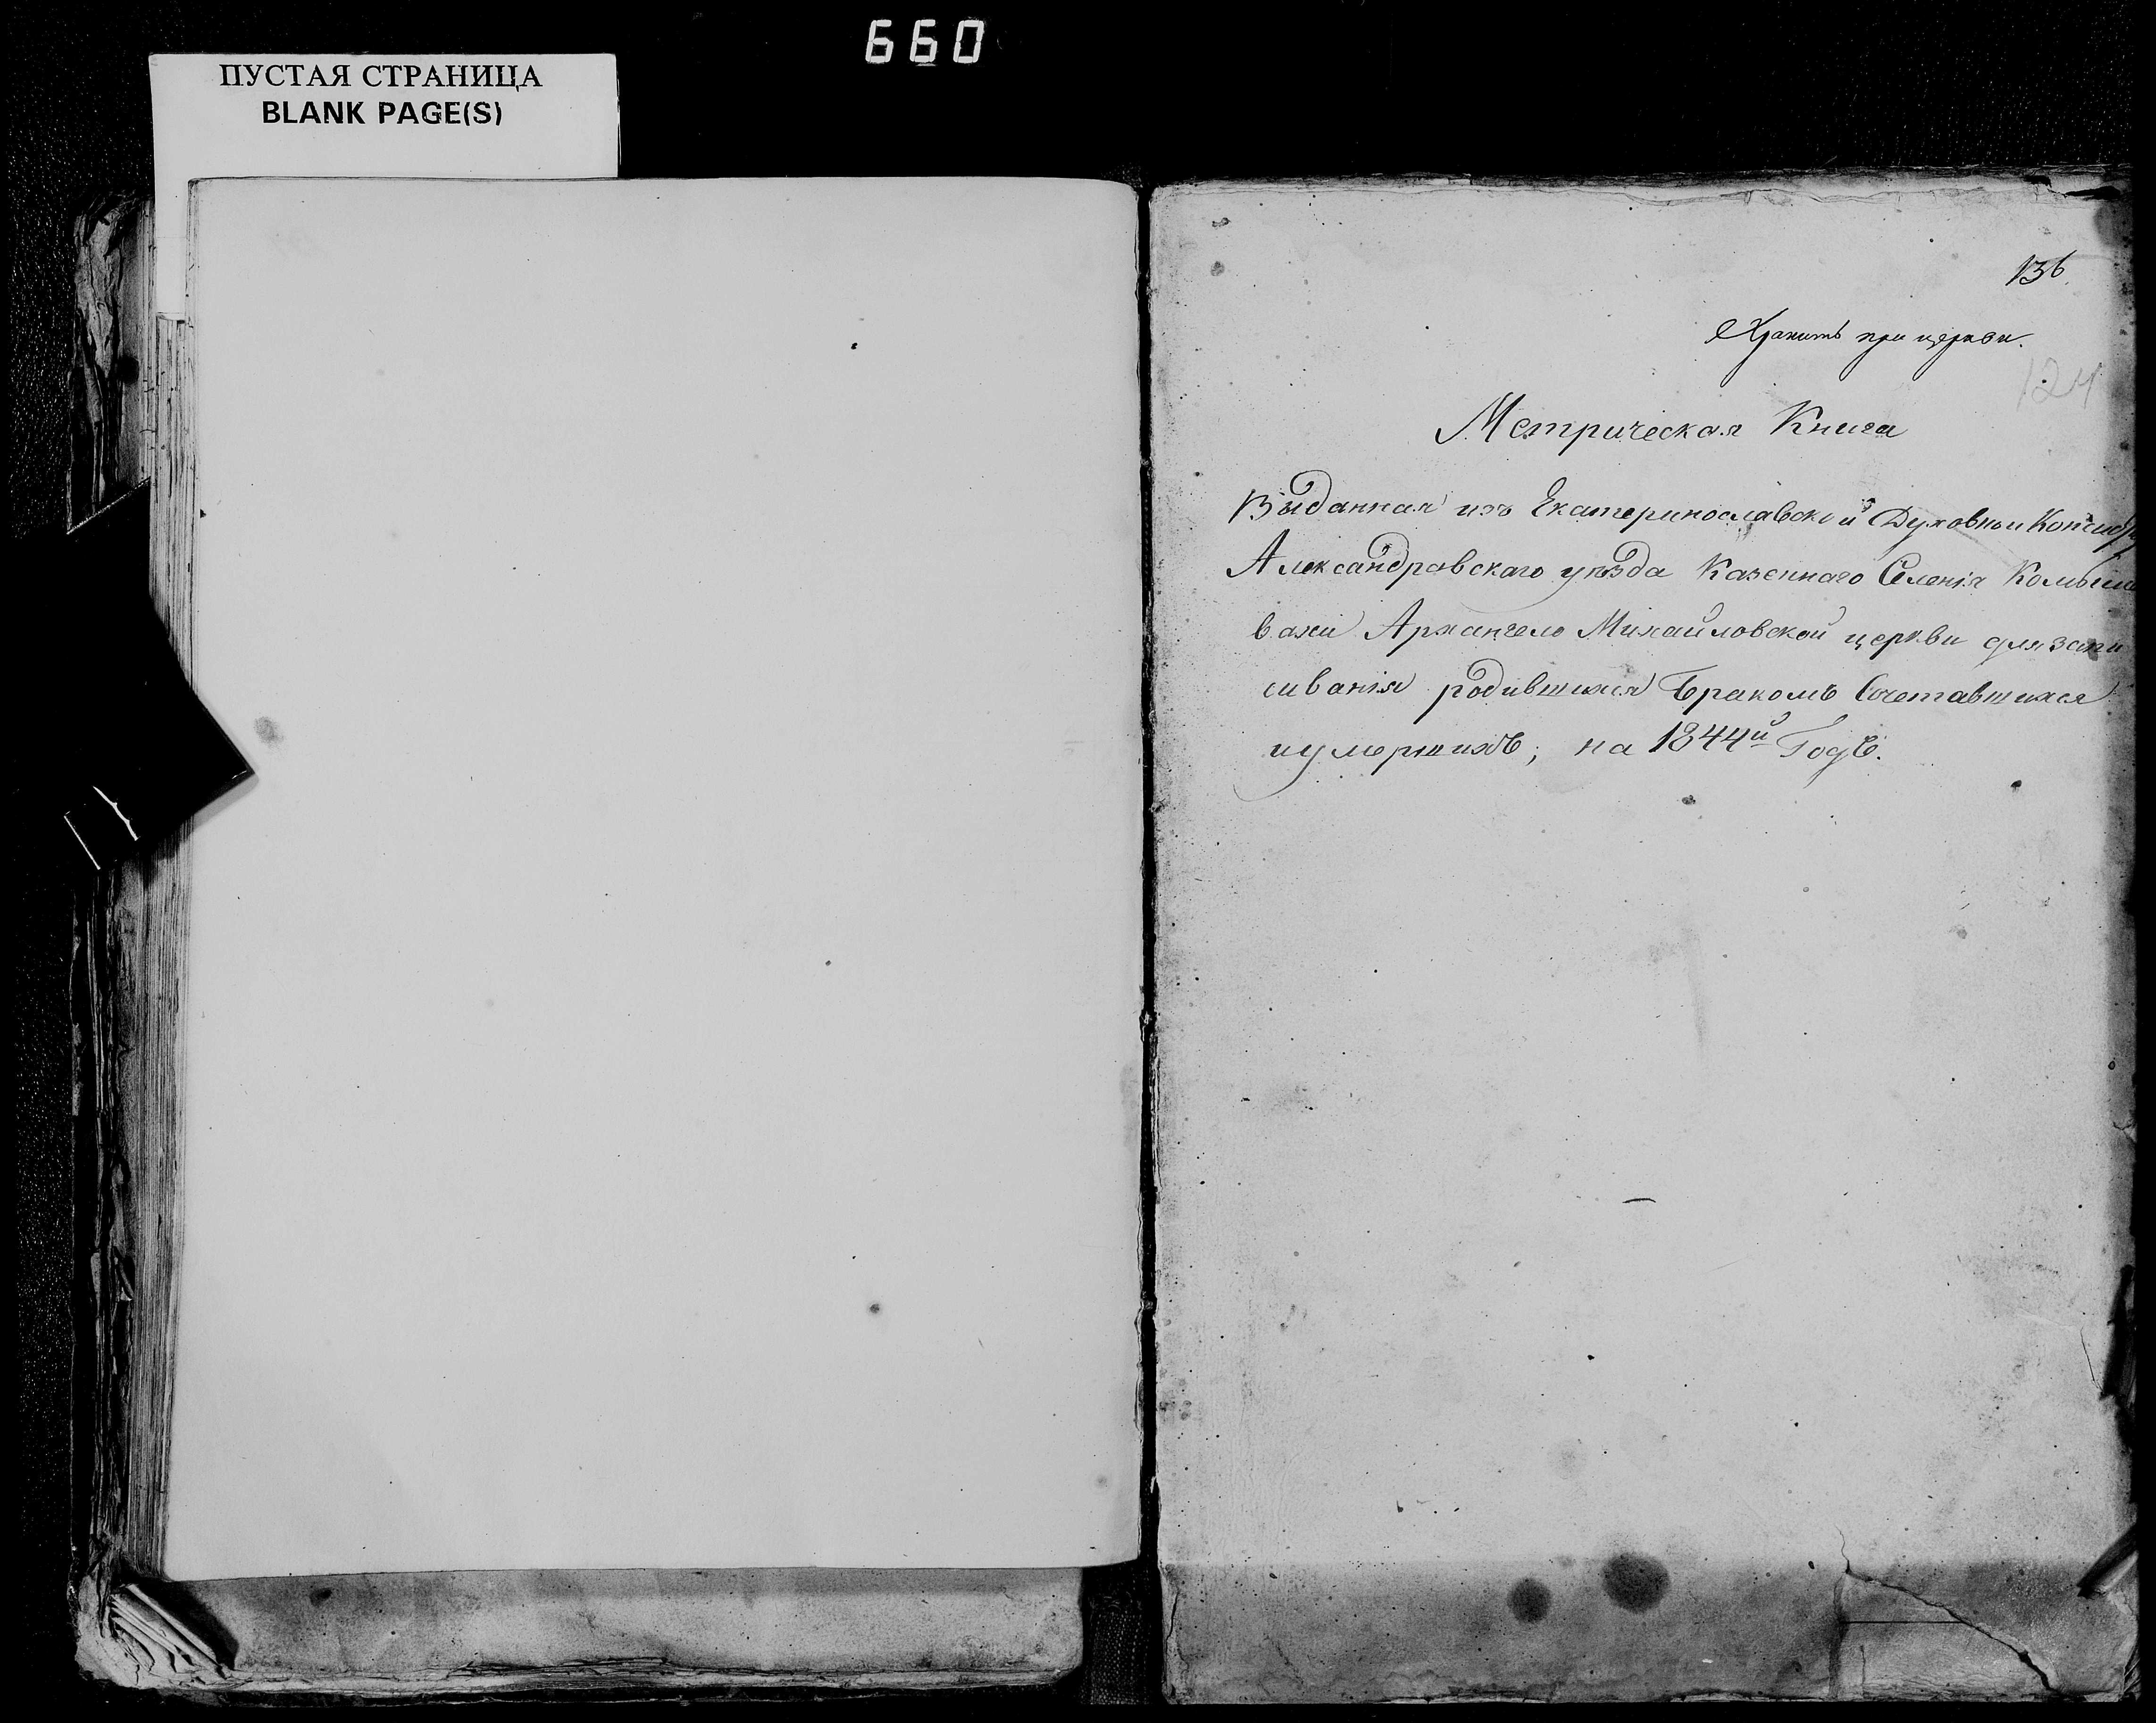 660
ПУСТАЯ СТРАНИЦА
BLANK PAGE(S)
136.
Хранить при церкви.
124
Метрическая Книга
Выданная изъ Екатеринославской Духовнои
Александровскаго уѣзда Казеннаго Селенія Комыше
вахи Архангело Михайловской церкви для запи
сиванія родившихся Бракомъ Сочетавшихся
иумершихъ, на 1844й Годъ.